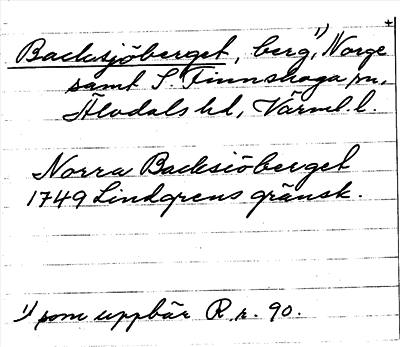 Backsjöberget, berg,¹⁾ Norge +
samt S. Finnskoga sn,
Älvdals hd, Värml. l.
Norra Backsiöberget
1749 Lindgrens gränsk.
¹⁾ som uppbär R. r. 90.